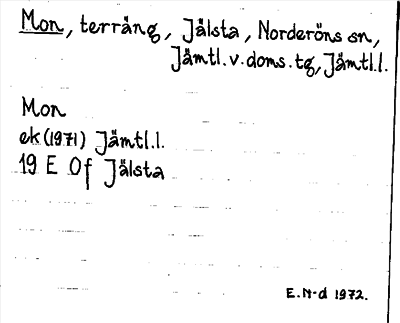 Mon, terräng, Jälsta, Norderöns sn,
Jämtl.v.doms.tg, Jämtl.l.
Mon
ek (1971) Jämtl.l.
19 E 0f Jälsta
E.N-d 1972.